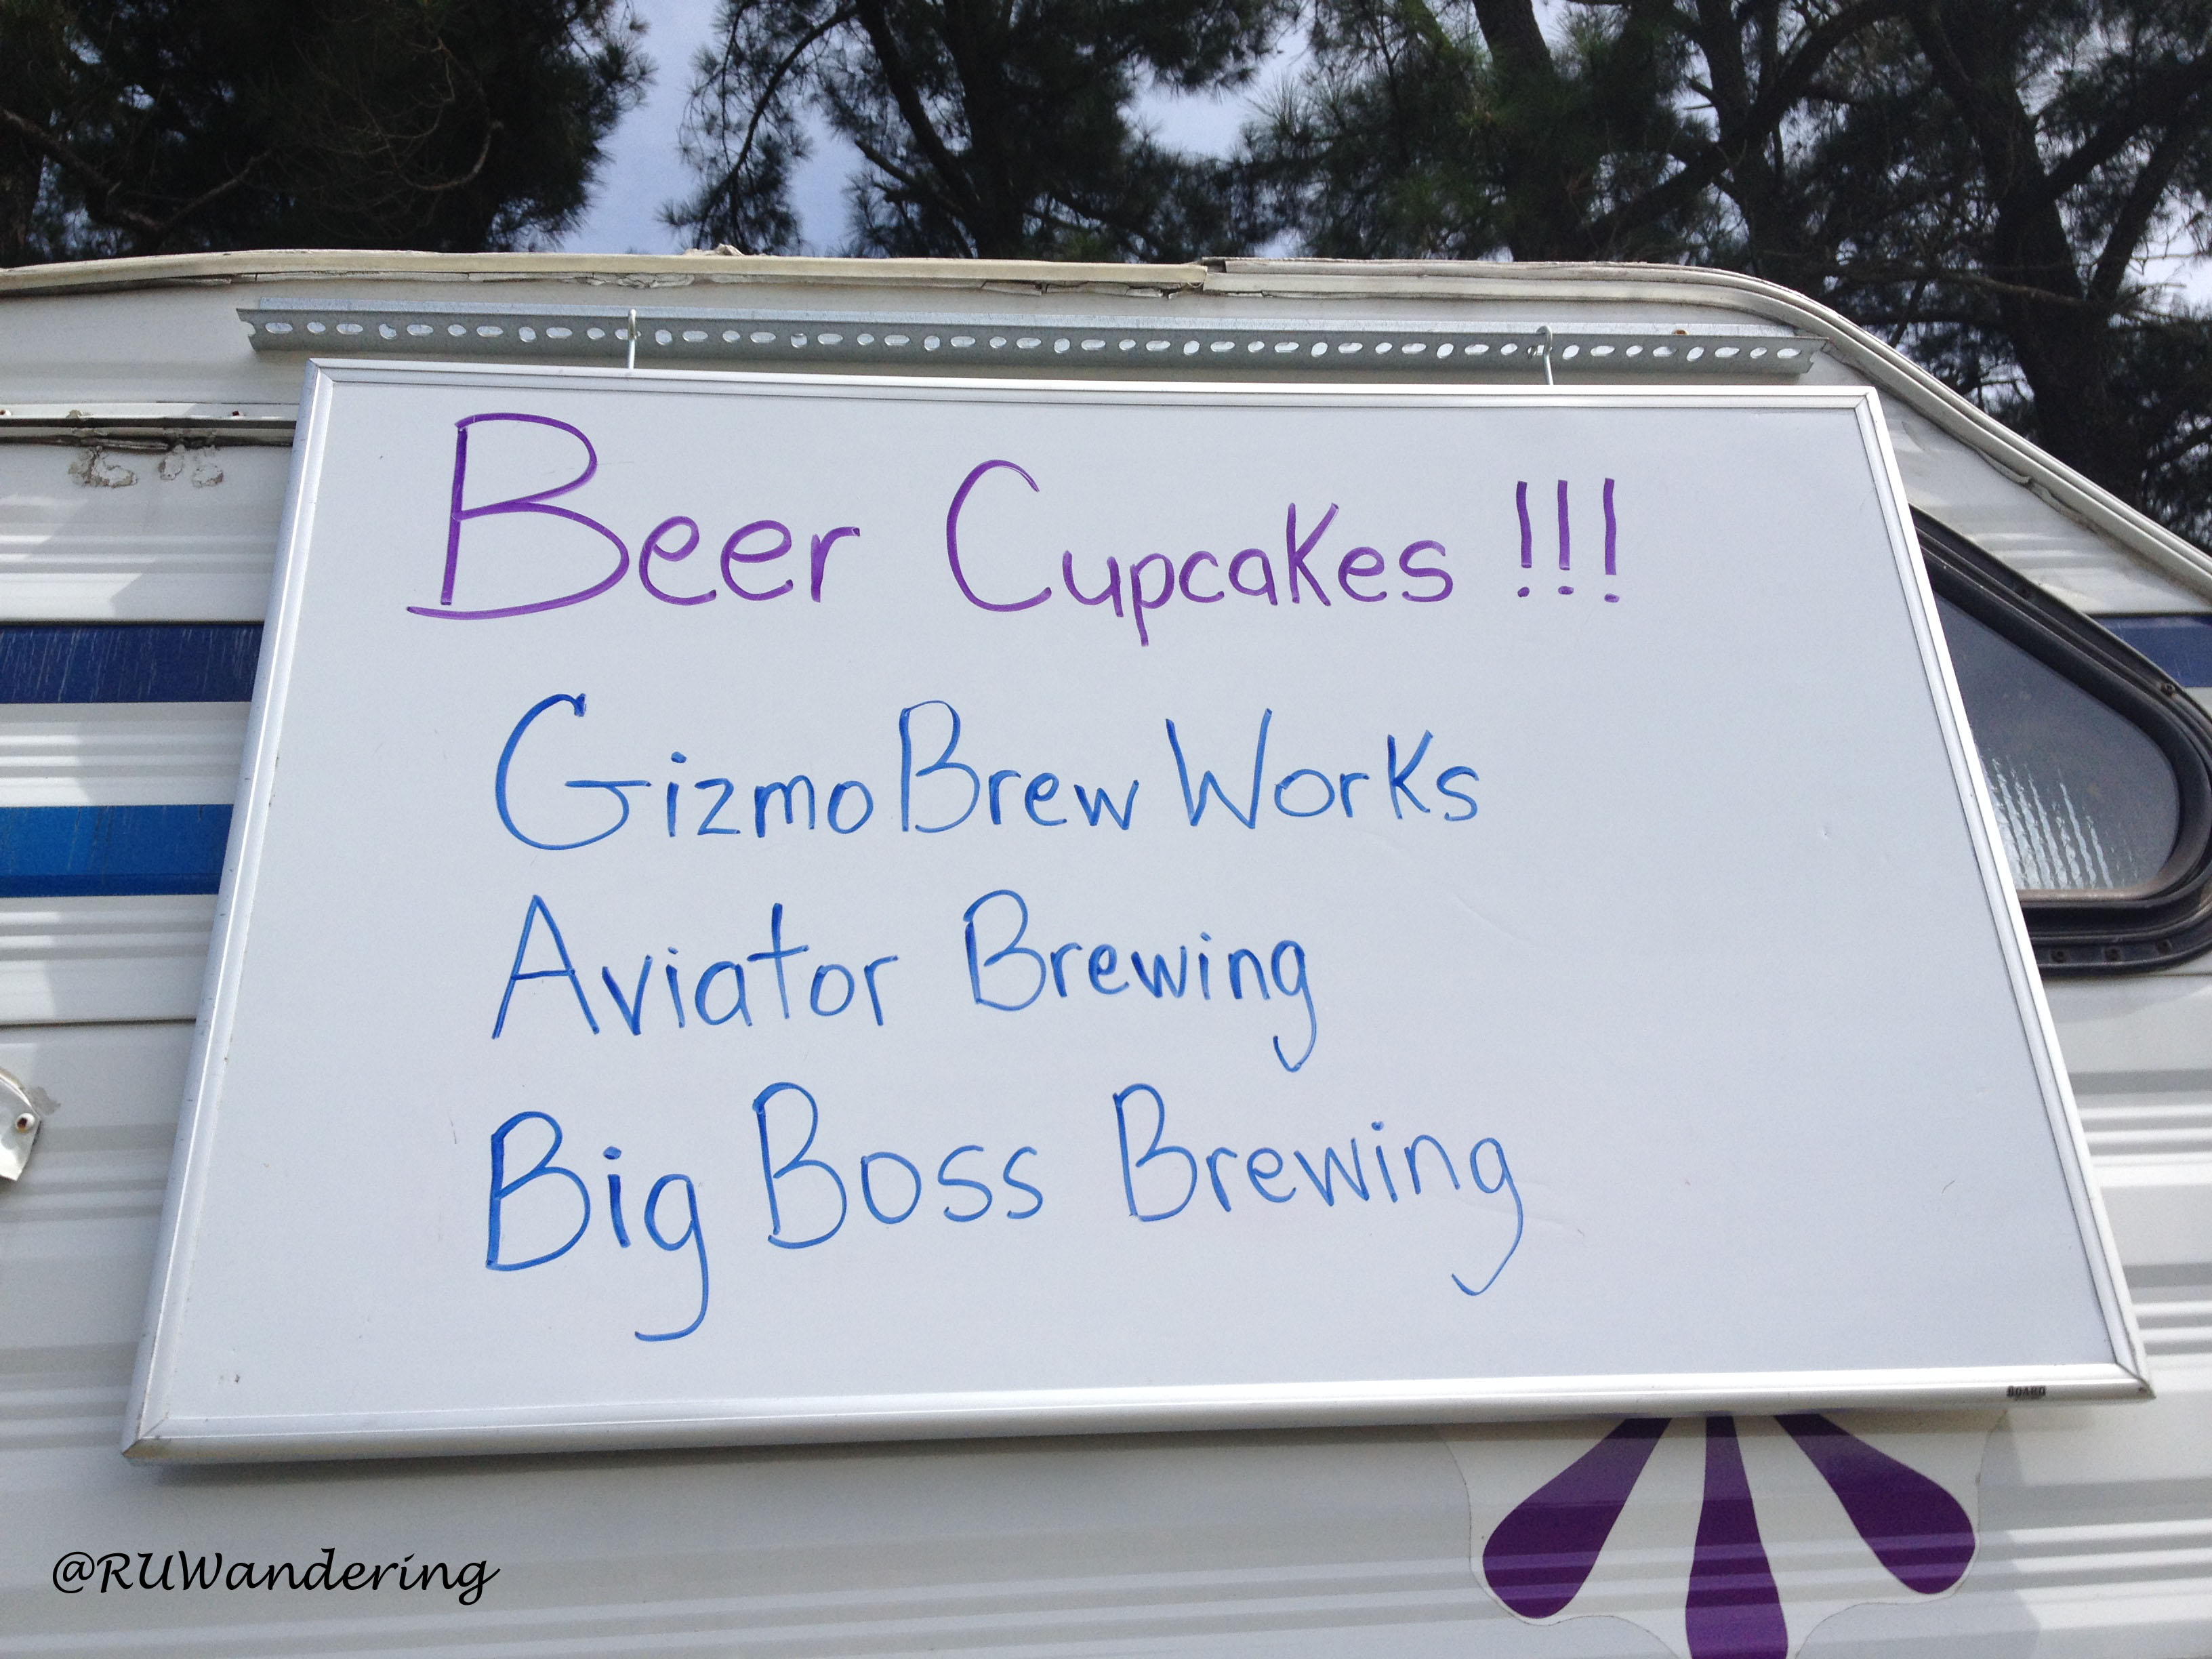 Beer Cupcakes !!!
Gizmo Brew Works
Aviator Brewing
Big Boss Brewing
BOARD
@RUWandering